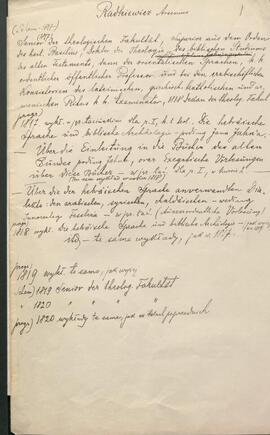 Radkiewicz
Senior der theologischen Fakultät, Superior aus dem Orden
des heil. Basilius, Doktor der Theologie, des biblischen Studiums
des alten Testaments, dann der orientalischen Sprachen, k. k.
ordentlicher öffentlicher Professor und bei den erzbischöflichen
Konsistorien des lateinischen, griechisch-katholischen und ar-
menischen Ritus Examinator, 1818 Dekan der theolog. Fakultät
1817 wykł. Die hebräische
Sprache und biblische Archäologie - według Jahn'a.
- Über die Einleitung in die Bücher des alten
Bundes według Jahn, exegetische Vorlesungen
über diese Bücher
- Über die der hebräischen Sprache anverwandten Dia-
lekte - den arabischen, syrischen, chaldäischen - według
(Ausserordentliche Vorlesung)
1818 wykł. die hebräische Sprache und biblische Archäologie
- te same wykłady, jak w 1817.
1819 wykł. te same, jak wyżej
1819 Senior der theolog. Fakultät
" 1820 " " "
1820 wykłady te same, jak w latach poprzednich